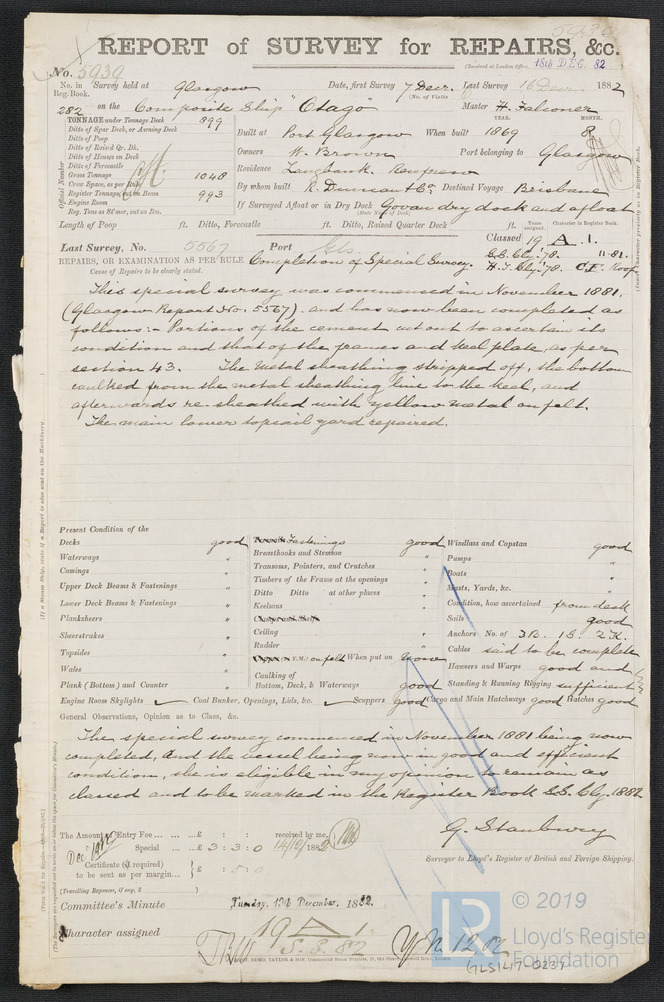 REPORT of SURVEY for REPAIRS, &c.
No. 5939
(Received at London Office, 18th DEC. 82
No. in Reg. Book.
Survey held at Glasgow Date, first Survey 7 Decr. Last Survey 16 Decr. 1882
(No. of Visits
282 on the Composite Ship "Otago" Master H. Falconer
TONNAGE under Tonnage Deck 899
Ditto of Spar Deck, or Awning Deck
Ditto of Poop
Ditto of Raised Qr. Dk.
Ditto of Houses on Deck
Ditto of Forecastle
Gross Tonnage 1048
Crew Space, as per Rule
Register Tonnage, cut on Beam 993
Engine Room
Reg. Tons as St'mer, cut on Bm.
Official Number
YEAR. MONTH.
Built at Port Glasgow When built 1869 8
Owners W. Brown Port belonging to Glasgow
Residence Langbank, Renfrew
By whom built R. Duncan & Co. Destined Voyage Brisbane
If Surveyed Afloat or in Dry Dock Govan dry dock and afloat
(State Name of Dock)
Length of Poop ft. Ditto, Forecastle ft. Ditto, Raised Quarter Deck ft.
Years assigned. Character in Register Book.
Last Survey, No. 5567 Port Gls.
Classed 19 A. 1.
S.S. Cly. 78. 11-81.
H.T. Cly. 78. C.F. Roof
REPAIRS, OR EXAMINATION AS PER RULE Completion of Special Survey.
Cause of Repairs to be clearly stated.
This special survey was commenced in November 1881.
(Glasgow Report No. 5567) and has now been completed as
follows:- Portions of the cement cut out to ascertain its
condition and that of the frames and keel plate, as per
section 43. The metal sheathing stripped off, the bottom
caulked from the metal sheathing line to the keel, and
afterwards re-sheathed with yellow metal on felt.
The main lower topsail yard repaired.
(If a Steam Ship, state if a Report is also sent on the Machinery.
Present Condition of the
Decks good
Waterways "
Comings "
Upper Deck Beams & Fastenings "
Lower Deck Beams & Fastenings "
Planksheers "
Sheerstrakes "
Topsides "
Wales "
Plank (Bottom) and Counter "
Fastenings good
Breasthooks and Stemson "
Transoms, Pointers, and Crutches "
Timbers of the Frame at the openings "
Ditto Ditto at other places "
Keelsons "
Ceiling "
Rudder "
(Y.M.) on felt When put on now
Caulking of Bottom, Deck, & Waterways good
Windlass and Capstan good
Pumps "
Boats "
Masts, Yards, &c. "
Condition, how ascertained from deck
Sails good
Anchors No. of 3B. 1S. 2K.
Cables said to be complete
Hawsers and Warps good and
Standing & Running Rigging sufficient
Engine Room Skylights ✓ Coal Bunker, Openings, Lids, &c. ✓ Scuppers good Cargo and Main Hatchways good Hatches good
General Observations, Opinion as to Class, &c.
The special survey commenced in November 1881 being now
completed, and the vessel being now in good and efficient
condition, she is eligible in my opinion to remain as
classed and to be marked in the Register Book S.S. Cly. 1882
The Amount of Entry Fee ... £ : : received by me,
Special ... £ 3 : 3 : 0 14/12/1882
Dec 1882
Certificate (if required) to be sent as per margin... £ : 5 : 0
(Travelling Expenses, if any, £ )
G. Stanbury
Surveyor to Lloyd's Register of British and Foreign Shipping.
Committee's Minute Tuesday, 19th December, 1882.
Character assigned 19 A 1.
S.S. 82
Y.M. 12.82
GLS1417-0239
LR
© 2019
Lloyd's Register
Foundation